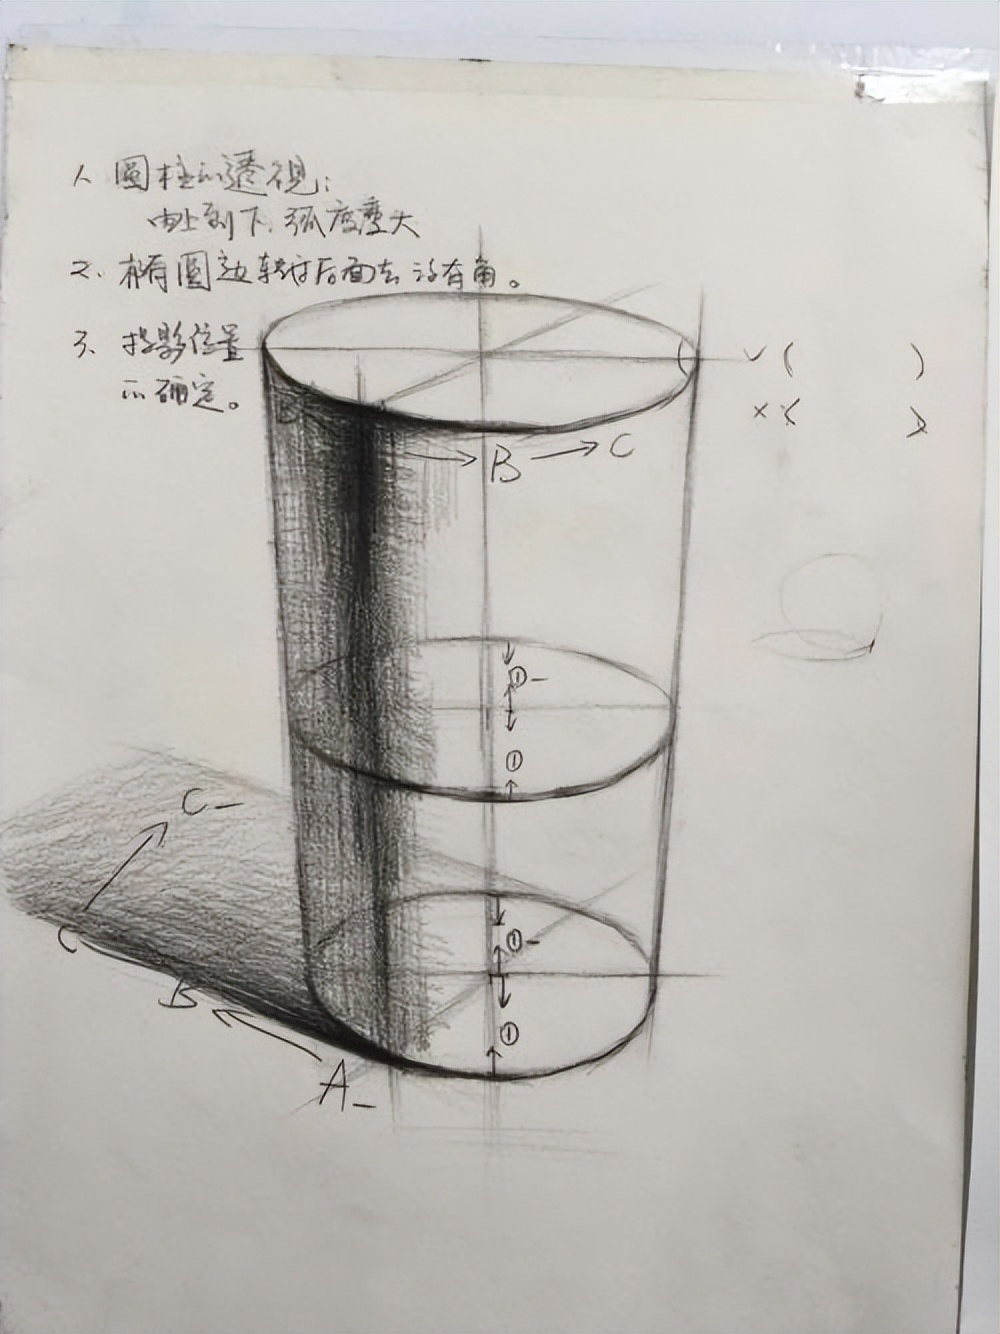 1、圆柱的透视：
由上到下，弧度变大
2、椭圆边转过后面去没有角。
3、投影位置
的确定。
✓ (    )
× <    >
B → C
①-
①
C-
C
B
①-
①
A-